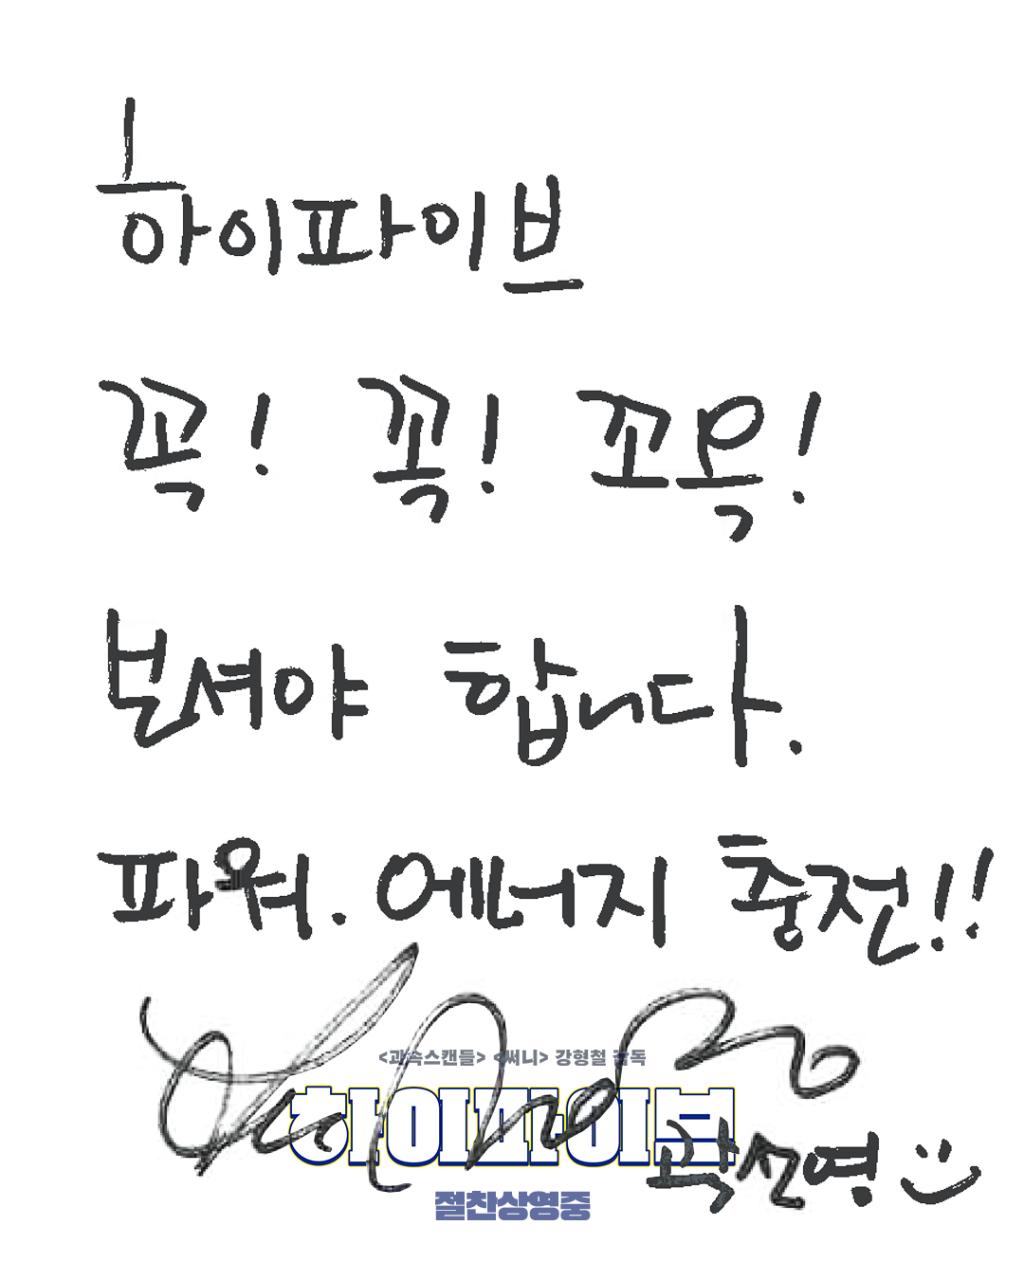 하이파이브
꼭! 꼭! 꼬옥!
보셔야 합니다.
파워. 에너지 충전!!
<과속스캔들> <써니> 강형철 감독
하이파이브
곽선영
절찬상영중